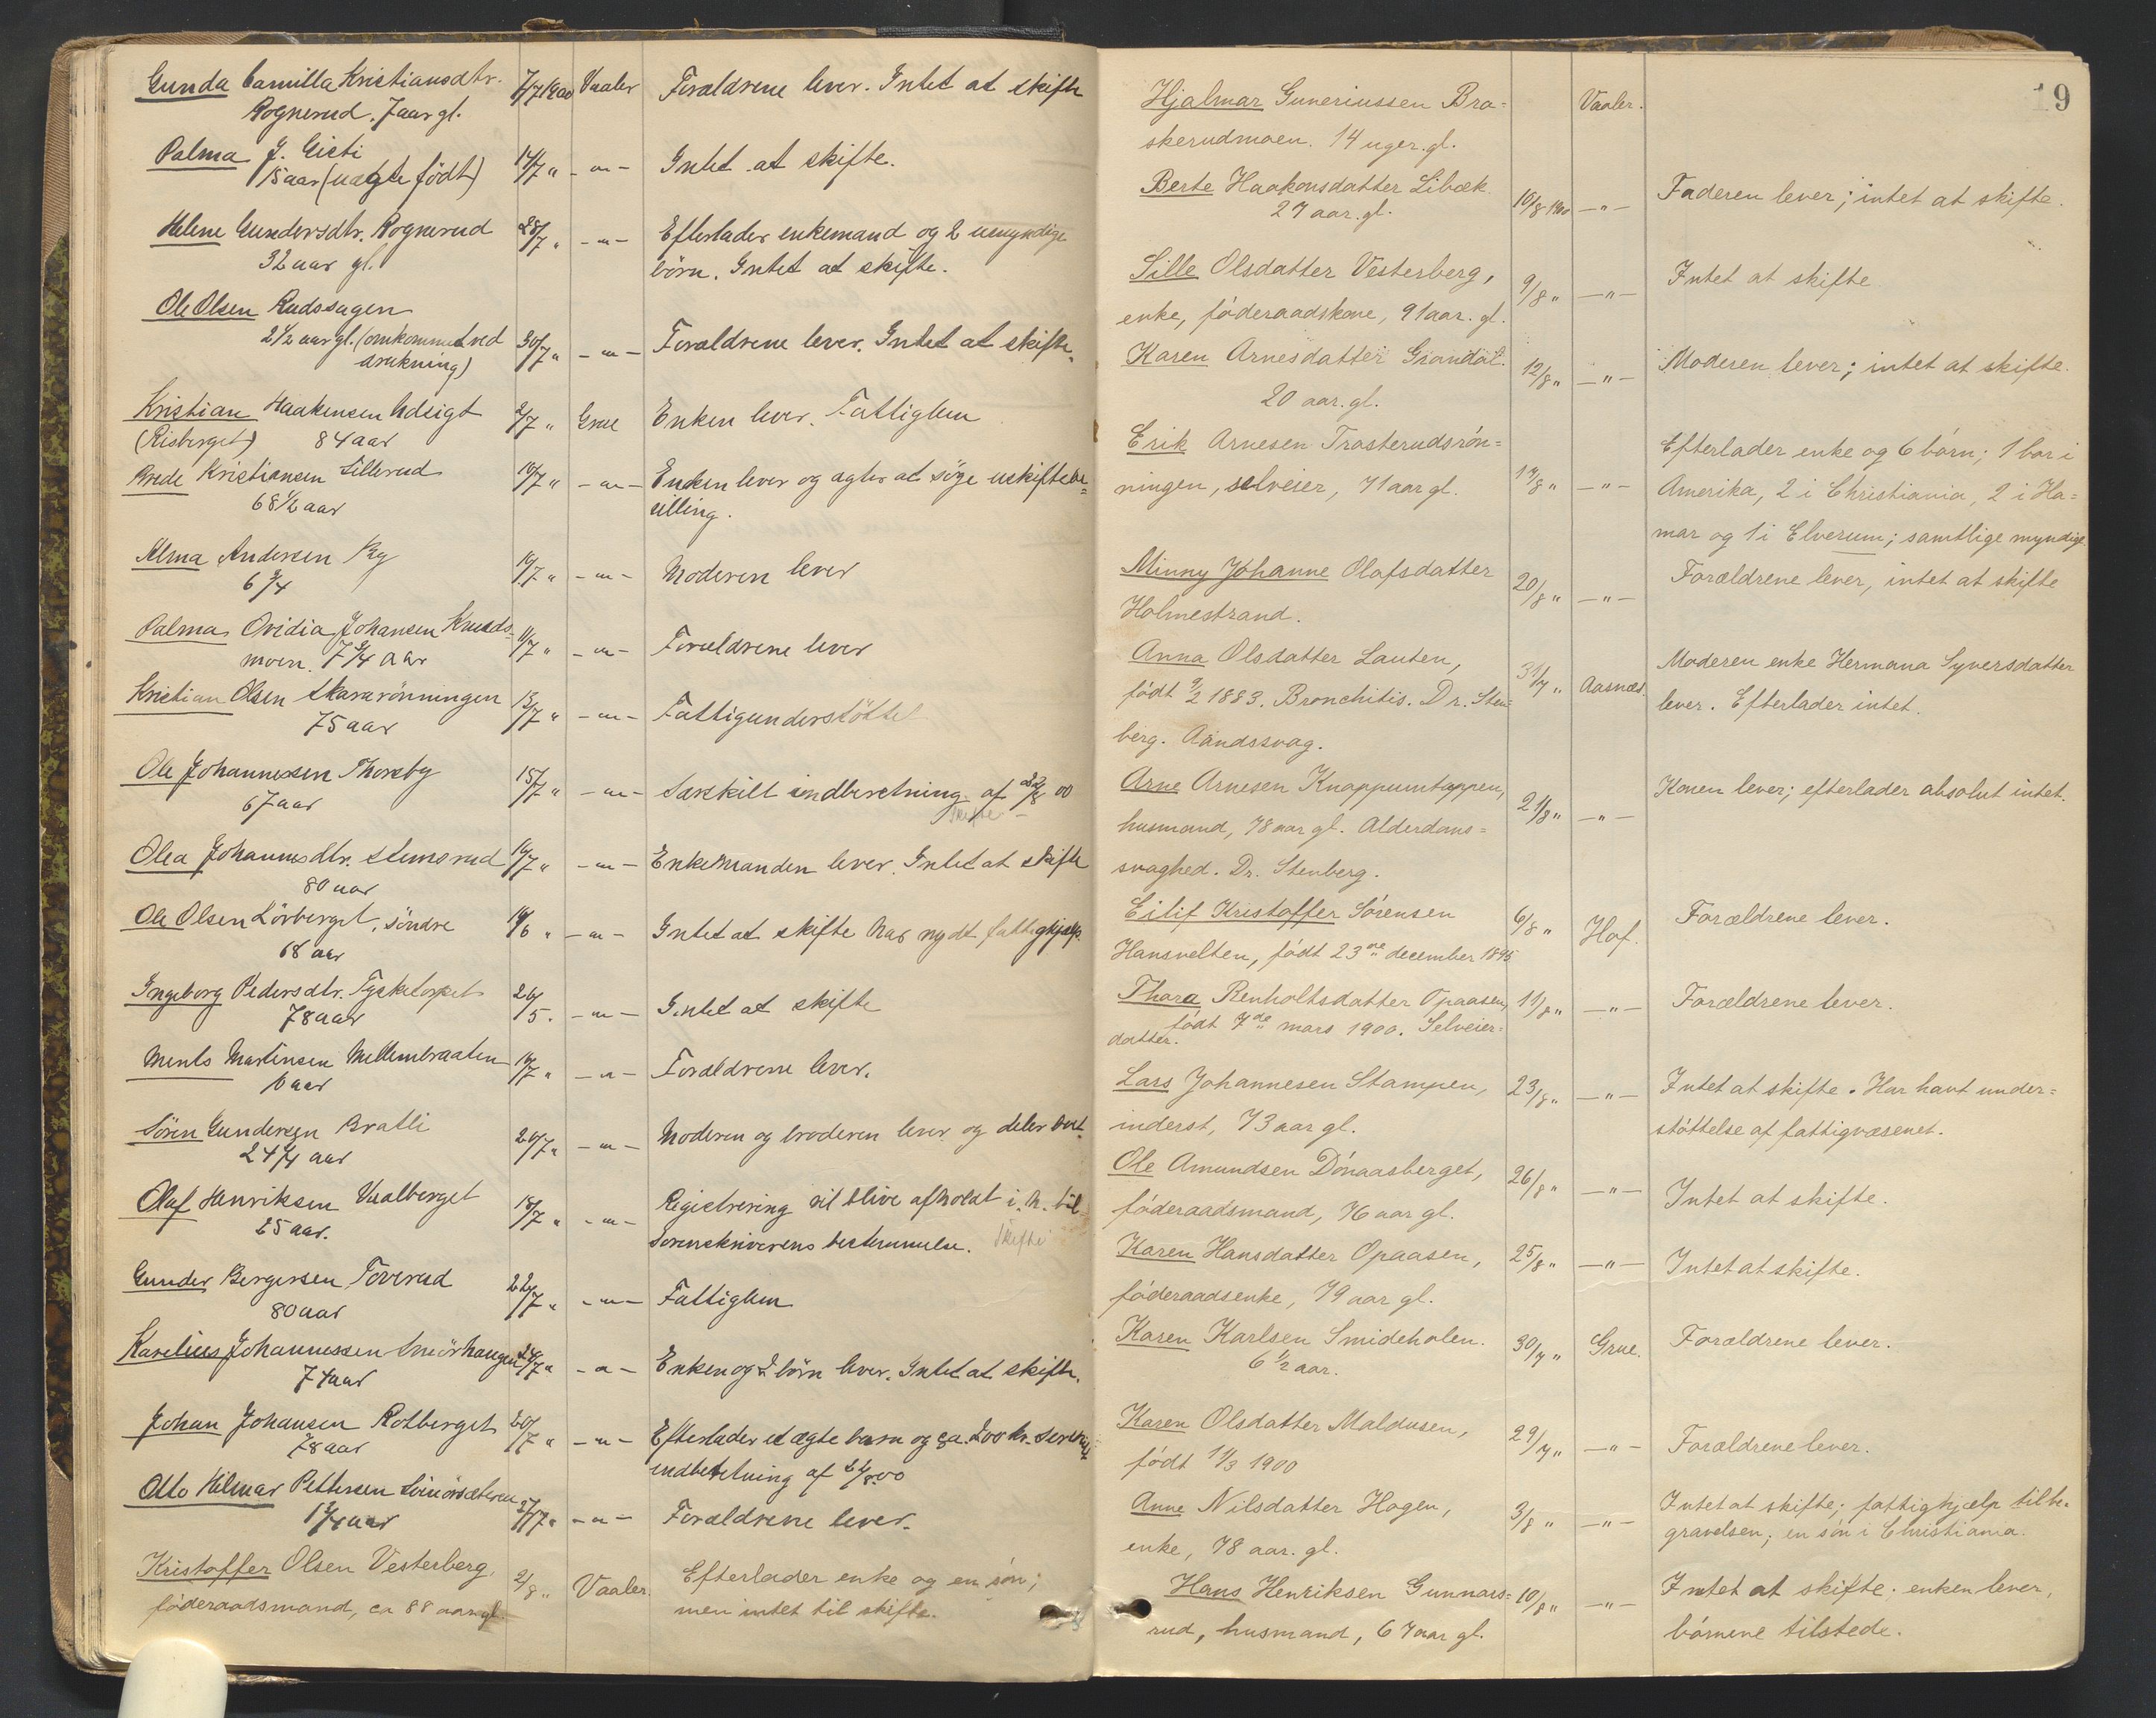 Gunda Camilla Kristiansdtr. 7/7 1900 Vaaler Forældrene lever. Intet at skifte
Rognerud. 7 aar gl.
Palma J. Eisti 14/7 " - " - Intet at skifte.
15 aar (uægte födt)
Helene Gundersdtr. Rognerud 28/7 " - " - Efterlader enkemand og 2 umyndige
32 aar gl. börn. Intet at skifte.
Ole Olsen Rudssagen
2 1/2 aar gl. (omkommet ved 30/7 " - " - Forældrene lever. Intet at skifte.
drukning)
Kristian Haakensen Udsigt 2/7 " Grue Enken lever. Fattiglem
(Risberget) 84 aar
Brede Kristiansen Lillerud 10/7 " - " - Enken lever og agter at söge uskiftebe=
68 1/2 aar villing.
Alma Andersen Ry 10/7 " - " - Moderen lever
6 3/4
Palma Ovidia Johansen Knuds- 11/7 " - " - Forældrene lever
moen. 7 3/4 aar
Kristian Olsen Skararönningen 13/7 " - " - Fattigunderstöttet
75 aar
Ole Johannessen Thoreby 15/7 " - " - Særskilt indberetning af 22/8 00
67 aar Skifte -
Olea Johannesdtr. Stemsrud 16/7 " - " - Enkemanden lever. Intet at skifte
80 aar
Ole Olsen Lörberget, söndre 19/6 " - " - Intet at skifte Har nydt fattighjælp.
68 aar
Ingeborg Pedersdtr. Tysketorpet 26/5. - " - Intet at skifte
78 aar
Ments Martinsen Mellembraaten 16/7 " - " - Forældrene lever.
6 aar
Sören Gundersen Bratli 20/7 " - " - Moderen og broderen lever og deler boet.
24 3/4 aar
Olaf Henriksen Vaalberget 18/7 " - " - Registrering vil blive afholdt i. h. til
25 aar. Sorenskriverens bestemmelse. Skifte
Gunder Bergersen Toverud 22/7 " - " - Fattiglem
80 aar
Karelius Johannessen Smörhaugen 24/7 " - " - Enken og 2 börn lever. Intet at skifte.
74 aar
Johan Johansen Rotberget 20/7 " - " - Efterlader et ægte barn og ca. 200 kr.
78 aar indberetning af
Otto Hilmar Pettersen 27/7 " - " - Forældrene lever.
1 3/4 aar
Kristoffer Olsen Vesterberg, 2/8 " Vaaler Efterlader enke og en sön;
föderaadsmand, ca 88 aar gl. men intet til skifte.
19
Hjalmar Guneriussen Bra= Vaaler.
skerudmoen. 14 uger. gl.
Berte Haakonsdatter Libæk 10/8 1900 - " - Faderen lever; intet at skifte.
27 aar. gl.
Sille Olsdatter Vesterberg, 9/8 " - " - Intet at skifte
enke, föderaadskone, 91 aar. gl.
Karen Arnesdatter Grandal. 12/8 " - " - Moderen lever; intet at skifte.
20 aar. gl.
Erik Arnesen Trasterudsrön= 17/8 " - " - Efterlader enke og 6 börn; 1 bor i
ningen, selveier, 71 aar gl. Amerika, 2 i Christiania, 2 i Ha=
mar og 1 i Elverum; samtlige myndige
Minny Johanne Olafsdatter 20/8 " - " - Forældrene lever, intet at skifte
Holmestrand.
Anna Olsdatter Lauten, 31/7 " Aasnæs. Moderen enke Hermana Syversdatter
födt 9/2 1883. Bronchitis. Dr. Sten= lever. Efterlader intet.
berg. Aandssvag.
Arne Arnesen Knappumtappen, 21/8 " - " - Konen lever; efterlader absolut intet.
husmand, 78 aar gl. Alderdoms=
svaghed. Dr. Stenberg.
Eilif Kristoffer Sörensen 6/8 " Hof. Forældrene lever.
Hansvelten, födt 23de december 1895
Thora Renholtsdatter Opaasen, 11/8 " - " - Forældrene lever.
födt 7de mars 1900. Selveier=
datter.
Lars Johannesen Stampen, 23/8 " - " - Intet at skifte. Har havt under=
inderst, 73 aar gl. stöttelse af fattigvæsenet.
Ole Amundsen Dönaasberget, 26/8 " - " - Intet at skifte.
föderaadsmand, 76 aar gl.
Karen Hansdatter Opaasen, 25/8 " - " - Intet at skifte.
föderaadsenke, 79 aar gl.
Karen Karlsen Smideholen. 30/7 " Grue. Forældrene lever.
6 1/2 aar.
Karen Olsdatter Maldusen, 29/7 " - " - Forældrene lever.
födt 11/3 1900
Anne Nilsdatter Hagen, 3/8 " - " - Intet at skifte; fattighjælp til be-
enke, 78 aar. gl. gravelsen; en sön i Christiania.
Hans Henriksen Gunnars= 10/8 " - " - Intet at skifte. enken lever,
rud, husmand, 67 aar gl. börnene tilstede.